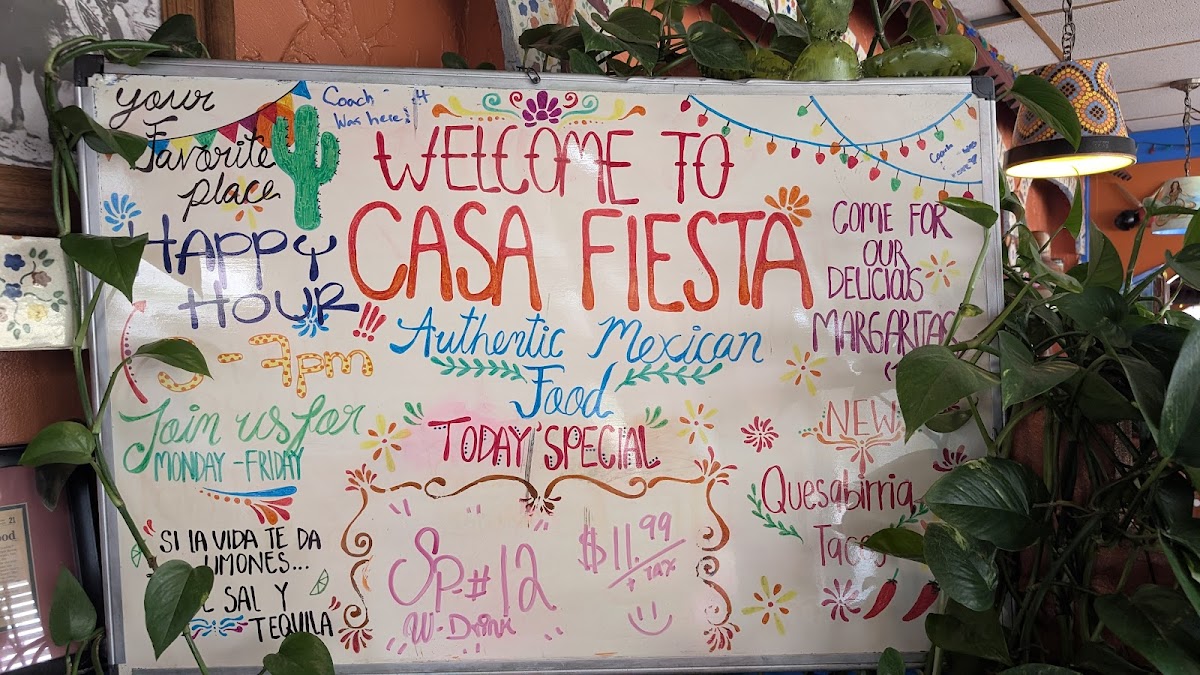 your
Favorite
place
Coach
Was here!
WELCOME TO
CASA FIESTA
Authentic Mexican
Food
HAPPY
HOUR!!!
- 7pm
Join us for
MONDAY - FRIDAY
SI LA VIDA TE DA
LIMONES...
SAL Y
TEQUILA
TODAY' SPECIAL
Sp. # 12
W. Drink
$11.99
+ TAX
Coach
COME FOR
OUR
DELICIOUS
MARGARITAS
NEW
Quesabirria
Tacos